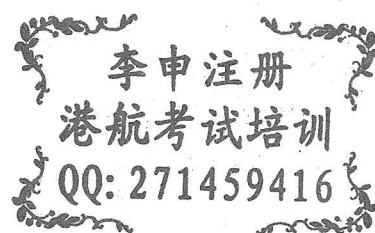 李申注册
港航考试培训
QQ: 271459416